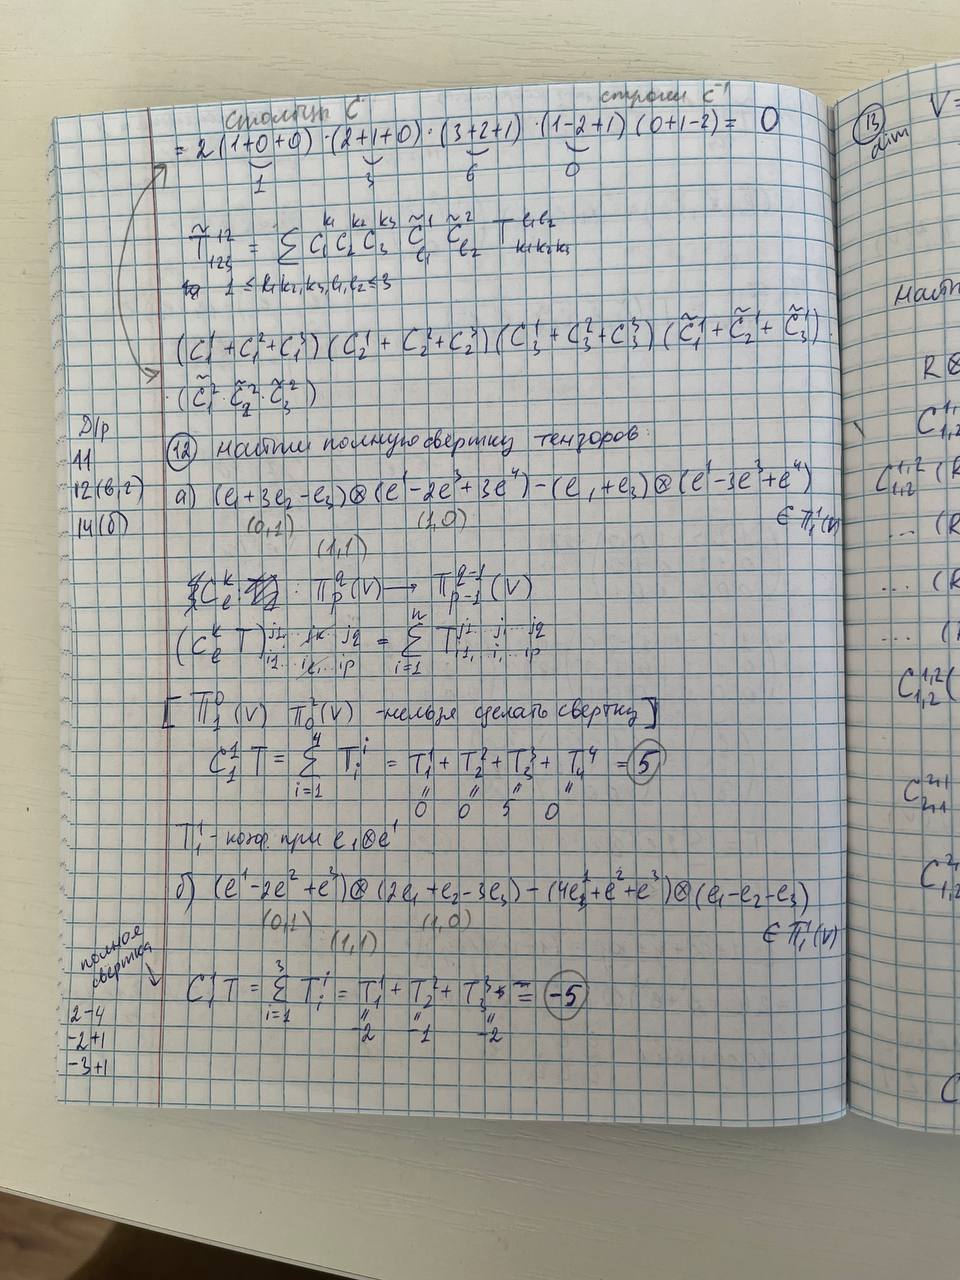 столбцы C строки C⁻¹
= 2 (1+0+0) · (2+1+0) · (3+2+1) · (1-2+1) (0+1-2) = 0
1 3 6 0
T̃¹²₁₂₃ = Σ C₁^{k₁} C₂^{k₂} C₃^{k₃} C̃¹_{l₁} C̃²_{l₂} T^{l₁l₂}_{k₁k₂k₃}
1 ≤ k₁,k₂,k₃,l₁,l₂ ≤ 3
(C₁¹ + C₁² + C₁³) (C₂¹ + C₂² + C₂³) (C₃¹ + C₃² + C₃³) (C̃₁¹ + C̃₂¹ + C̃₃¹) ·
· (C̃₁² · C̃₂² · C̃₃²)
Д/р
11
12 (в, г)
14 (б)
(12) Найти полную свертку тензоров:
а) (e₁ + 3e₂ - e₃) ⊗ (e¹ - 2e³ + 3e⁴) - (e₁ + e₃) ⊗ (e¹ - 3e³ + e⁴)
(0,1) (1,0) ∈ Π₁¹(V)
(1,1)
C_e^k : Π_p^q (V) → Π_{p-1}^{q-1} (V)
(C_e^k T)^{j₁...j_k...j_q}_{i₁...i_e...i_p} = Σ_{i=1}^n T^{j₁...i...j_q}_{i₁,...i,...i_p}
[ Π₁⁰ (V) Π₀² (V) - нельзя сделать свертку ]
C₁¹ T = Σ_{i=1}^4 T_i^i = T₁¹ + T₂² + T₃³ + T₄⁴ = 5
0 0 5 0
T₁¹ - коэф. при e₁⊗e¹
б) (e¹ - 2e² + e³) ⊗ (2e₁ + e₂ - 3e₃) - (4e¹ + e² + e³) ⊗ (e₁ - e₂ - e₃)
(0,1) (1,0) ∈ Π₁¹(V)
(1,1)
полное
свертка
C₁¹ T = Σ_{i=1}^3 T_i^i = T₁¹ + T₂² + T₃³ = -5
-2 -1 -2
2-4
-2+1
-3+1
(13) V=
dim
Найти
R ⊗
C₁,₂
C₁,₂^{1,2} (R
... (R
... (R
... (
C₁,₂^{1,2} (
C₂,₁^{2,1}
C₁,₂
C